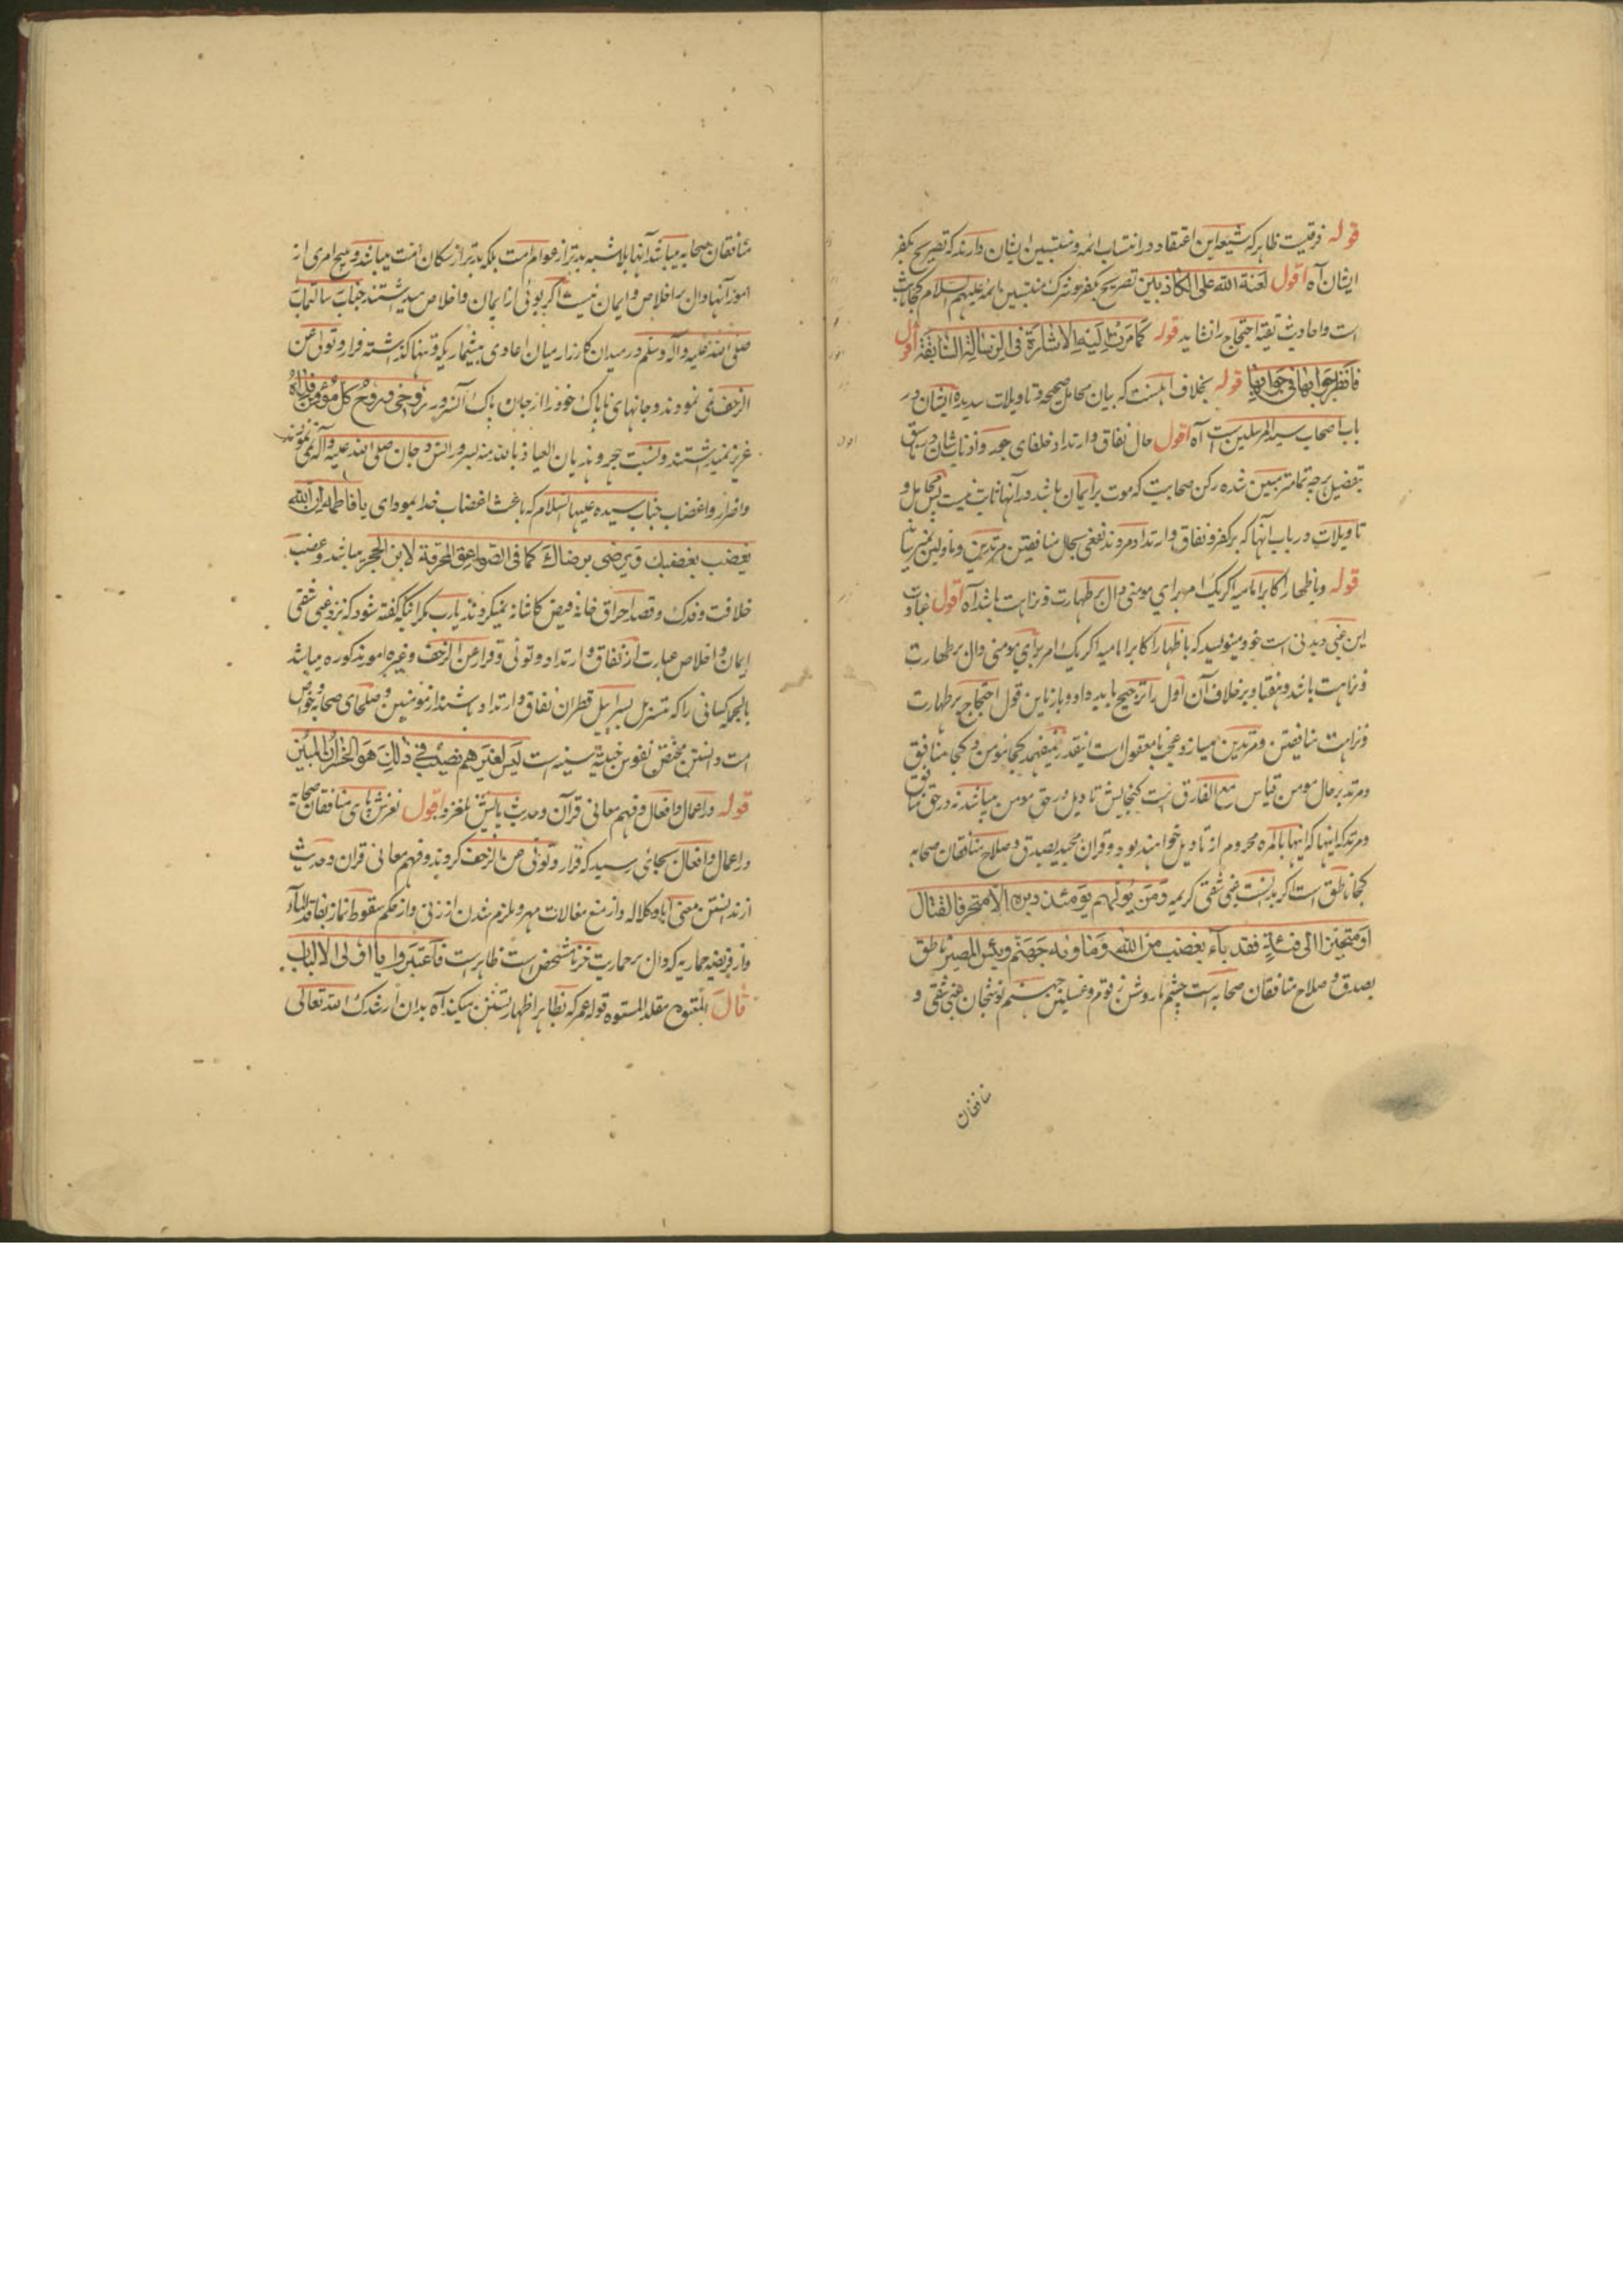 قوله فرقیست ظاهر که شیعه این اعتقاد در انتساب ائمه و منتسبین ایشان دارند که تصریح بکفر
ایشان آه اقول لعنة الله علی الکاذبین تصریح بکفر و شرک منتسبین بائمه علیهم السلام کجا ثابت
است واحادیث تقیه احتجاج را نشاید قوله کما مرت الیه الاشارة فی الرسالة السابقة اقول
فانظر جوابها فی جوابها قوله بخلاف اهلسنت که بیان محامل صحیحه و تاویلات سدیده ایشان در
باب اصحاب سید المرسلین است آه اقول حال نفاق وارتداد خلفای جور واذناب شان در سابق
بتفضیل هرچه تمامتر مبین شده رکن صحابیت که موت بر ایمان باشد در آنها ثابت نیست پس محامل و
تاویلات در باب آنها که بر کفر و نفاق وارتداد مردند نفعی بحال منافقین مرتدین و ماولین نمیرساند
قوله وباظهار اکابر امامیه اگر یک امر برای مومنی دال بر طهارت و نزاهت باشد آه اقول عبادت
این غبی دیدنی است خود مینویسد که باظهار اکابر امامیه اگر یک امر برای مومنی دال بر طهارت
و نزاهت باشد و هفتاد بر خلاف آن اول را ترجیح باید داد و باز باین قول احتجاج بر طهارت
و نزاهت منافقین و مرتدین میسازد و عجب نامعقول است اینقدر نمیفهمد کجا مومن و کجا منافق
ومرتد بر حال مومن قیاس مع الفارق است گنجایش تاویل در حق مومن میباشد نه در حق منافق
ومرتد که اینها که اینها بالمره محروم از تاویل خواهند بود و قران مجید بصدق و صلاح منافقان صحابه
کجا ناطق است اگر بدانست غبی شقی کریمه ومن یولهم یومئذ دبره الا متحرفا لقتال
او متحیزا الی فئة فقد باء بغضب من الله وماویه جهنم وبئس المصیر ناطق
بصدق و صلاح منافقان صحابه است چشم ما روشن زقوم و غسلین جهنم نوشجان غبی شقی و
منافقان
منافقان صحابه میباشد آنها بلا شبهه بدتر از عوام امت بلکه بدتر از سگان امت میباشند و هیچ امری از
امور آنها دال بر اخلاص وایمان نیست اگر بوئی از ایمان واخلاص میداشتند جناب رسالتمآب
صلی الله علیه وآله وسلم در میدان کارزار میان اعادی بیشمار یکه و تنها گذاشته فرار و تولی عن
الزحف نمی نمودند و جانهای ناپاک خود را از جان پاک آنسرور روحی و روح کل مؤمن فداه
عزیز نمیداشتند و نسبت هجر و هذیان العیاذ بالله منه بسرور انس و جان صلی الله علیه وآله نمی نمودند
واضرار واغضاب جناب سیده علیها السلام که باعث اغضاب خدا بمودای یا فاطمه ان الله
یغضب بغضبک ویرضی برضاک کما فی الصواعق المحرقة لابن الحجر میباشد و غصب
خلافت و فدک و قصد احراق خانه فیض کاشانه نمیکردند یارب مگر اینکه گفته شود که نزد غبی شقی
ایمان واخلاص عبارت از نفاق وارتداد و تولی و فرار عن الزحف وغیره امور مذکوره میباشد
بالجمله کسانی را که متسربل بسرابیل قطران نفاق وارتداد باشند از مومنین و صلحای صحابه و خواص
امت دانستن مختص نفوس خبیثه سنیه است لیس لغیرهم نصیب فی ذلک هو الخسران المبین
قوله در اعمال وافعال و فهم معانی قرآن و حدیث پایش نلغزد اقول لغزش پای منافقان صحابه
در اعمال وافعال بجائی رسید که فرار و تولی من الزحف کردند و فهم معانی قران و حدیث
از ندانستن معنی ابا و کلاله واز منع مغالات مهر و ملزم شدن از زنی واز حکم سقوط نماز بفاقد الماء
واز فریضه حماریه که دال بر حماریت خر نامشخص است ظاهر است فاعتبروا یا اولی الالباب
قال المعتوه مقلد المستوه قوله عمر که بظاهر اظهار تسنن میکند آه بدان ارشدک الله تعالی